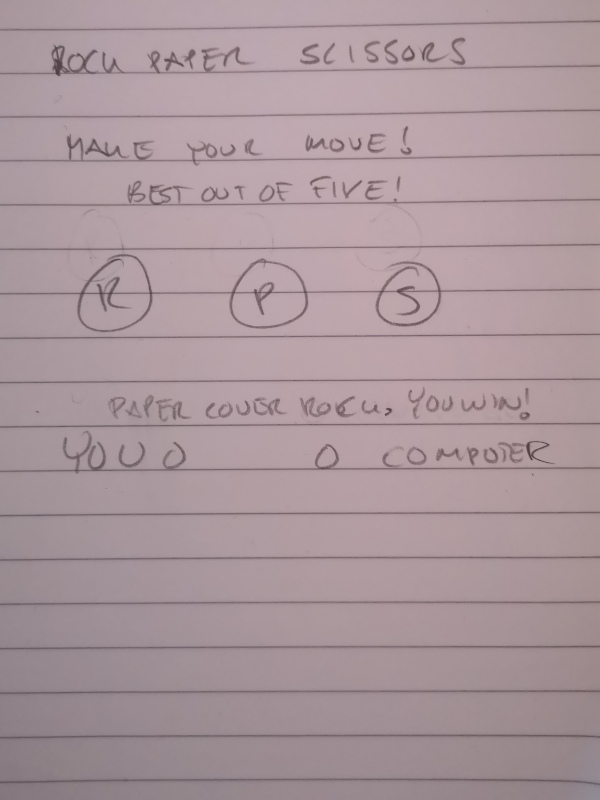 ROCK PAPER SCISSORS
MAKE YOUR MOVE!
BEST OUT OF FIVE!
R P S
PAPER COVER ROCK, YOU WIN!
YOU 0 0 COMPUTER